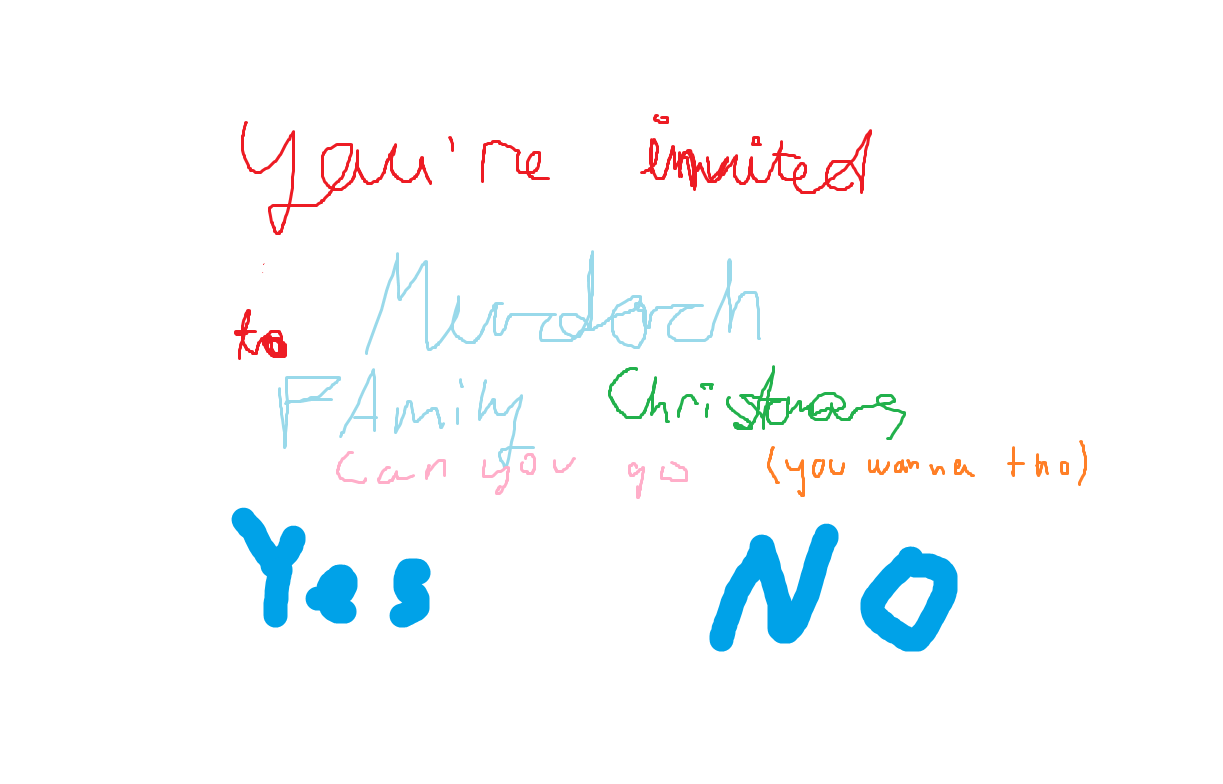 You're invited
to Murdoch
FAmily Christmas
can you go (you wanna tho)
Yes NO